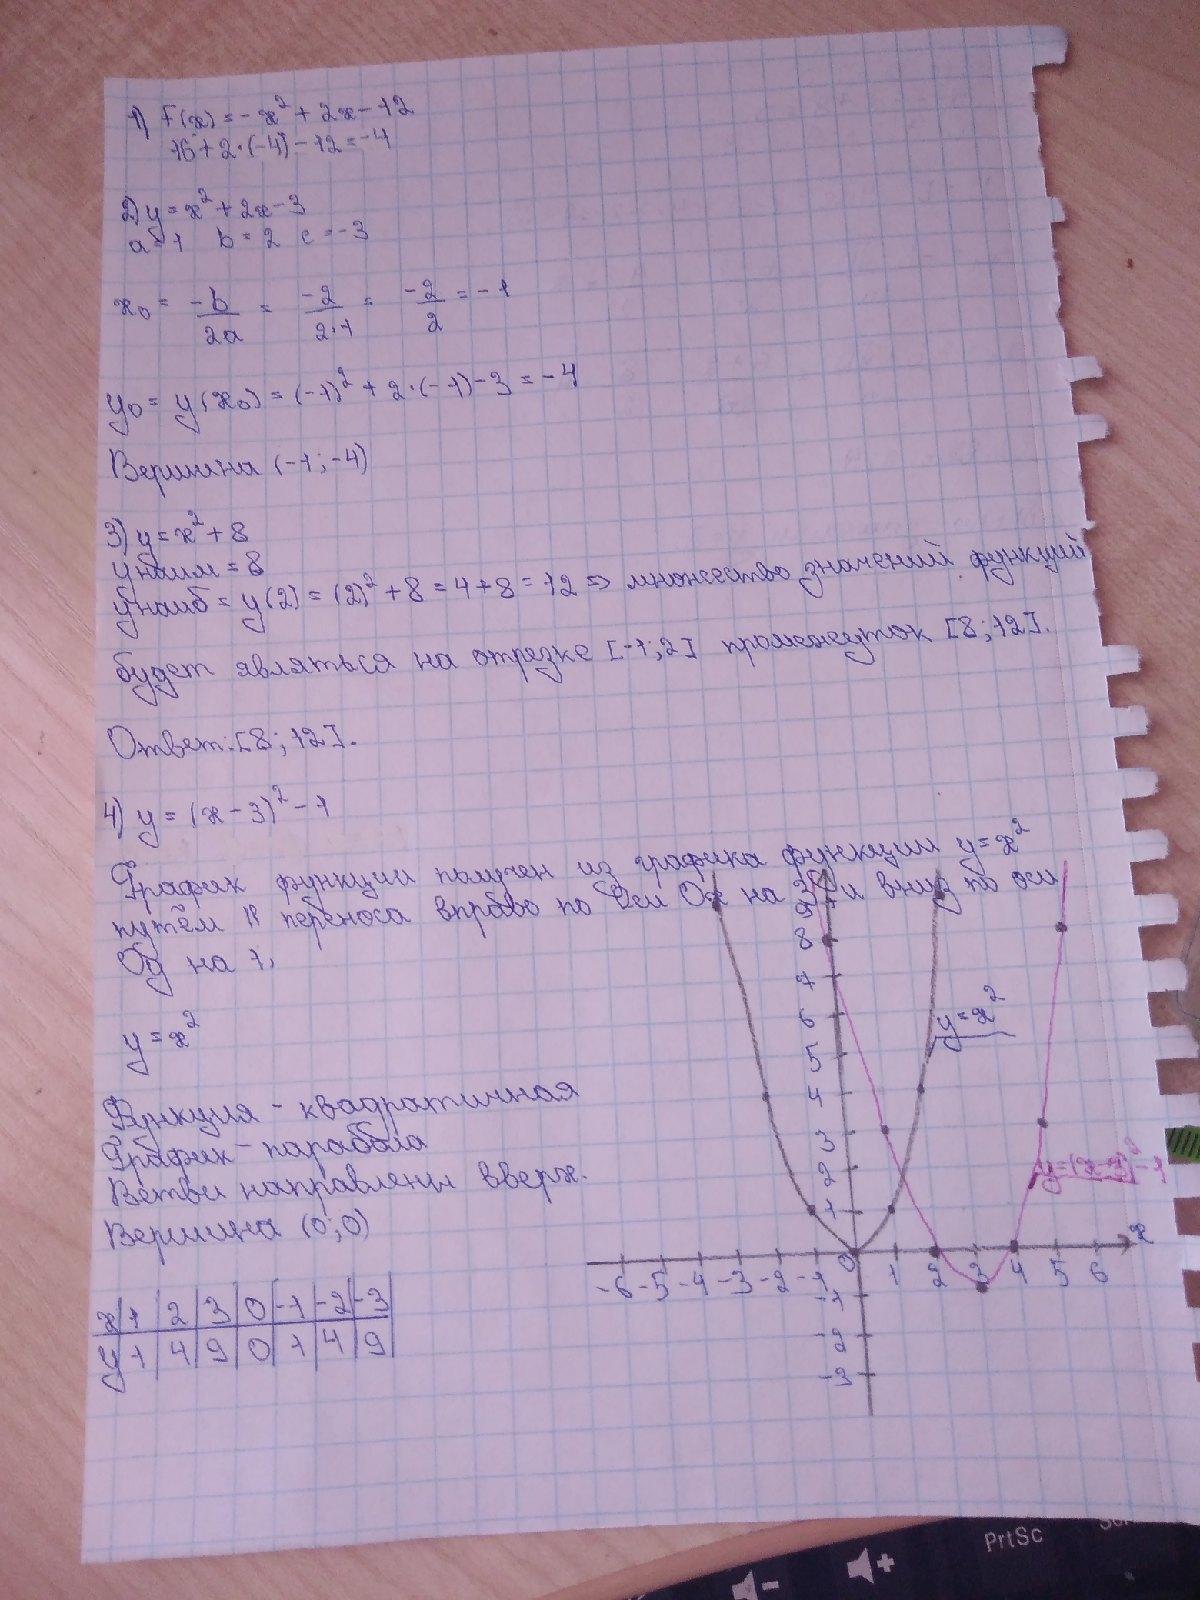 1) f(x) = -x² + 2x - 12
16 + 2·(-4) - 12 = -4
2) y = x² + 2x - 3
a = 1 b = 2 c = -3
x₀ = -b/2a = -2/2·1 = -2/2 = -1
y₀ = y(x₀) = (-1)² + 2·(-1) - 3 = -4
Вершина (-1; -4)
3) y = x² + 8
yнаим = 8
yнаиб = y(2) = (2)² + 8 = 4 + 8 = 12 => множество значений функций
будет являться на отрезке [-1; 2] промежуток [8; 12].
Ответ: [8; 12].
4) y = (x - 3)² - 1
График функции получен из графика функции y = x²
путём переноса вправо по Оси Ox на 3 и вниз по оси
Оу на 1.
y = x²
Функция - квадратичная
График - парабола
Ветви направлены вверх.
Вершина (0; 0)
x 1 2 3 0 -1 -2 -3
y 1 4 9 0 1 4 9
9
8
7
6
5
4
3
2
1
y = x²
y = (x-3)² - 1
x
-6 -5 -4 -3 -2 -1 0 1 2 3 4 5 6
-1
-2
-3
PrtSc